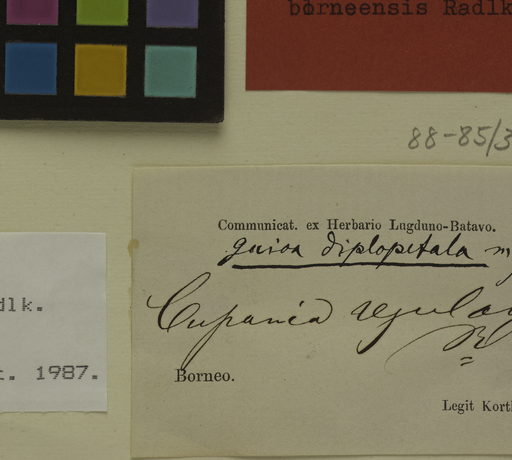 borneensis Radlk
88-85/3
Communicat. ex Herbario Lugduno-Batavo.
guioa diplopetala
Cupania regularis
Borneo.
Legit Korth
dlk.
. 1987.